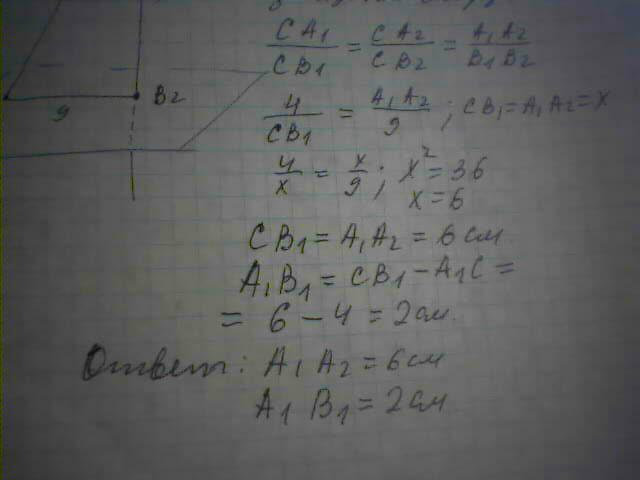 CA₁/CB₁ = CA₂/CB₂ = A₁A₂/B₁B₂
B₂
9
4/CB₁ = A₁A₂/9 ; CB₁ = A₁A₂ = x
4/x = x/9 ; x² = 36
x = 6
CB₁ = A₁A₂ = 6 см
A₁B₁ = CB₁ - A₁C =
= 6 - 4 = 2 см.
Ответ: A₁A₂ = 6 см
A₁B₁ = 2 см